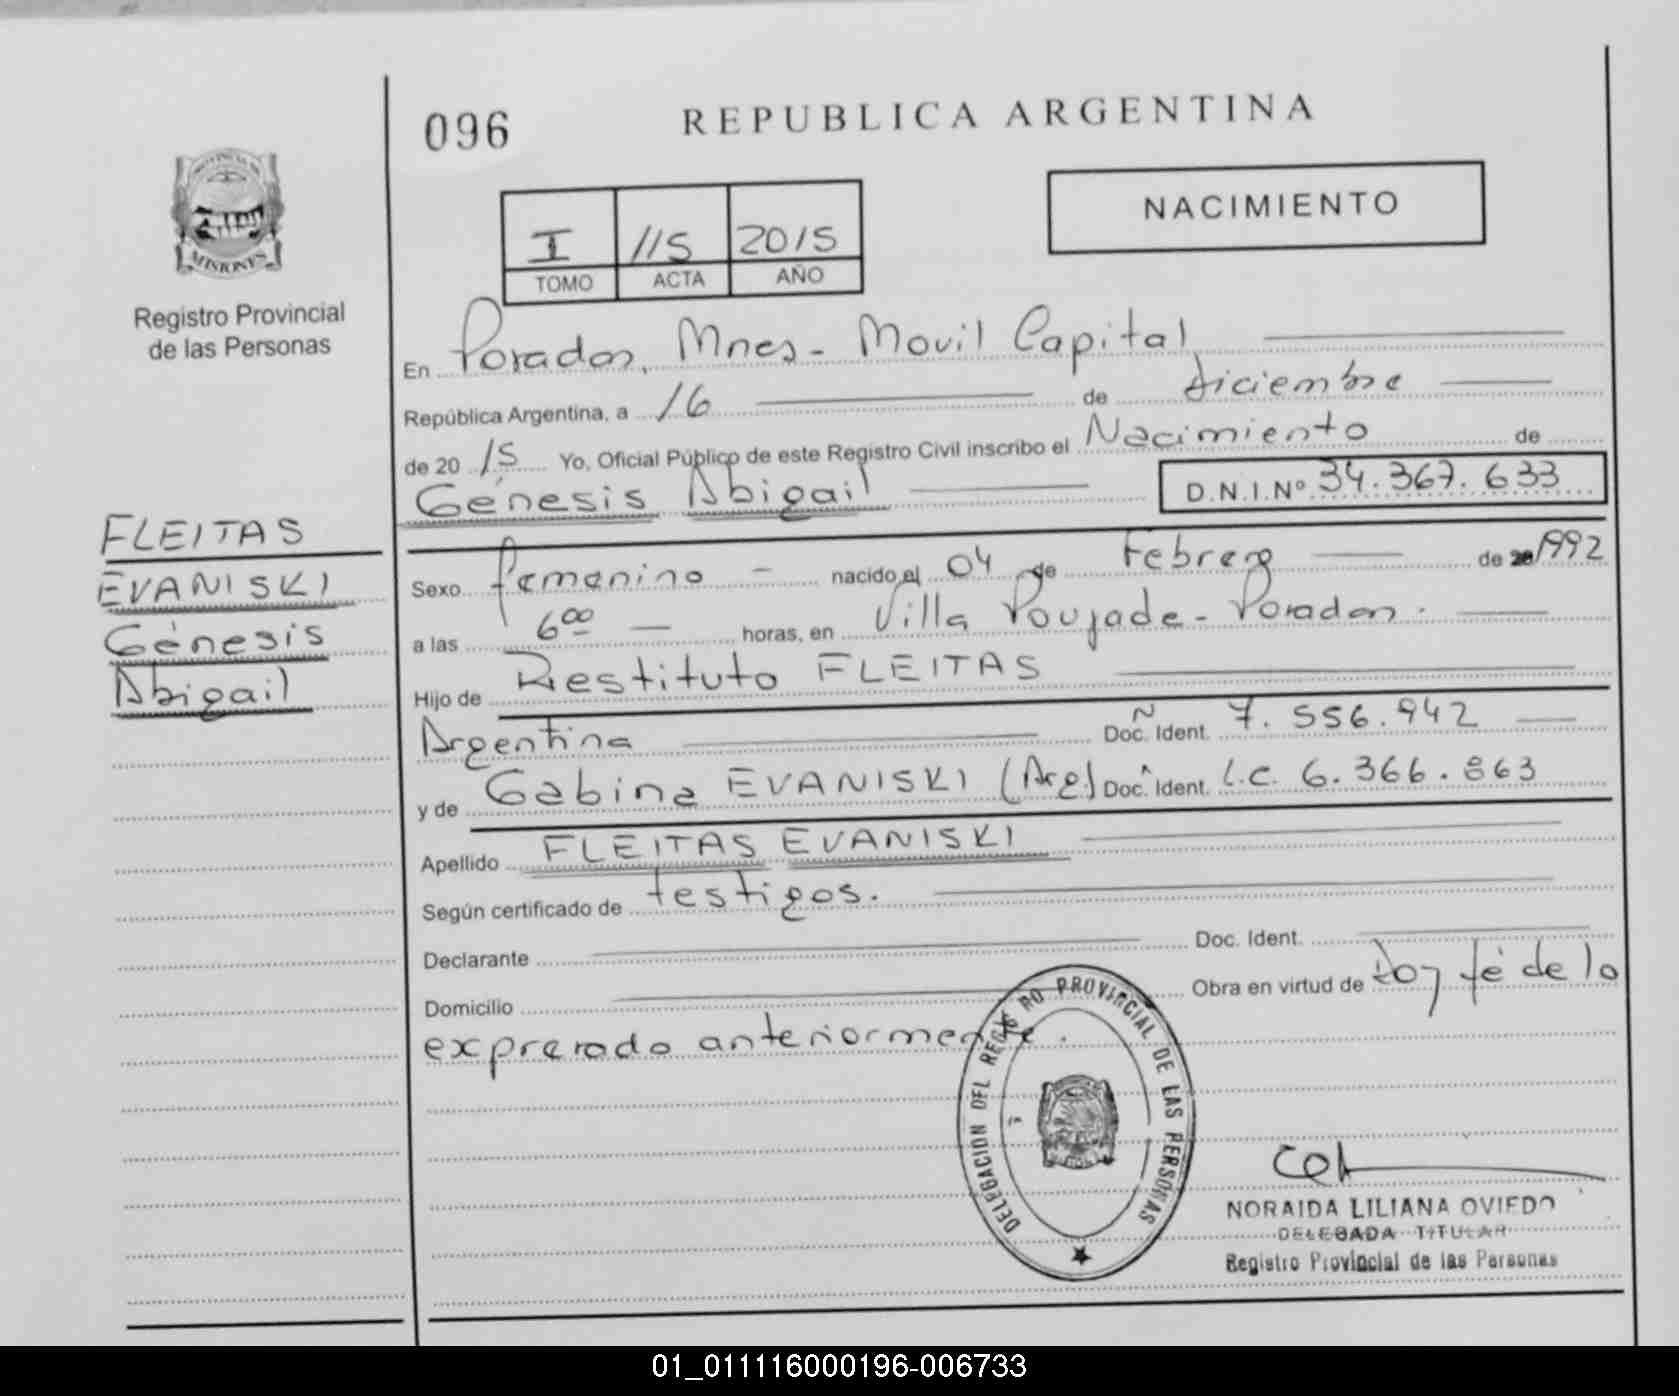 096
REPUBLICA ARGENTINA
NACIMIENTO
I 115 2015
TOMO ACTA AÑO
MISIONES
Registro Provincial
de las Personas
En Posadas, Mnes - Movil Capital
República Argentina, a 16 de diciembre
de 20 15 Yo, Oficial Público de este Registro Civil inscribo el Nacimiento de
Génesis Abigail D.N.I.Nº 34.367.633
FLEITAS
EVANISKI
Génesis
Abigail
Sexo femenino - nacido el 04 de Febrero de 1992
a las 6 00 horas, en Villa Poujade - Posadas.
Hijo de Restituto FLEITAS
Argentina Doc. Ident. 7.556.942
y de Gabina EVANISKI (Arg) Doc. Ident. L.C. 6.366.863
Apellido FLEITAS EVANISKI
Según certificado de testigos.
Declarante Doc. Ident.
Domicilio Obra en virtud de Doy fé de lo
expresado anteriormente.
DELEGACION DEL REGISTRO PROVINCIAL DE LAS PERSONAS
NORAIDA LILIANA OVIEDO
DELEGADA TITULAR
Registro Provincial de las Personas
01_011116000196-006733